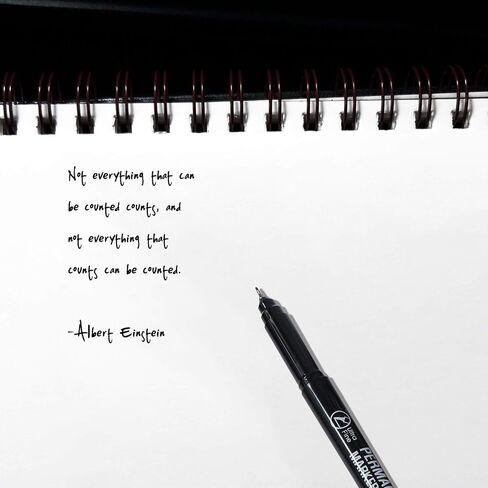 Not everything that can
be counted counts, and
not everything that
counts can be counted.
-Albert Einstein
Ultra
Fine
PERMA
MARKER